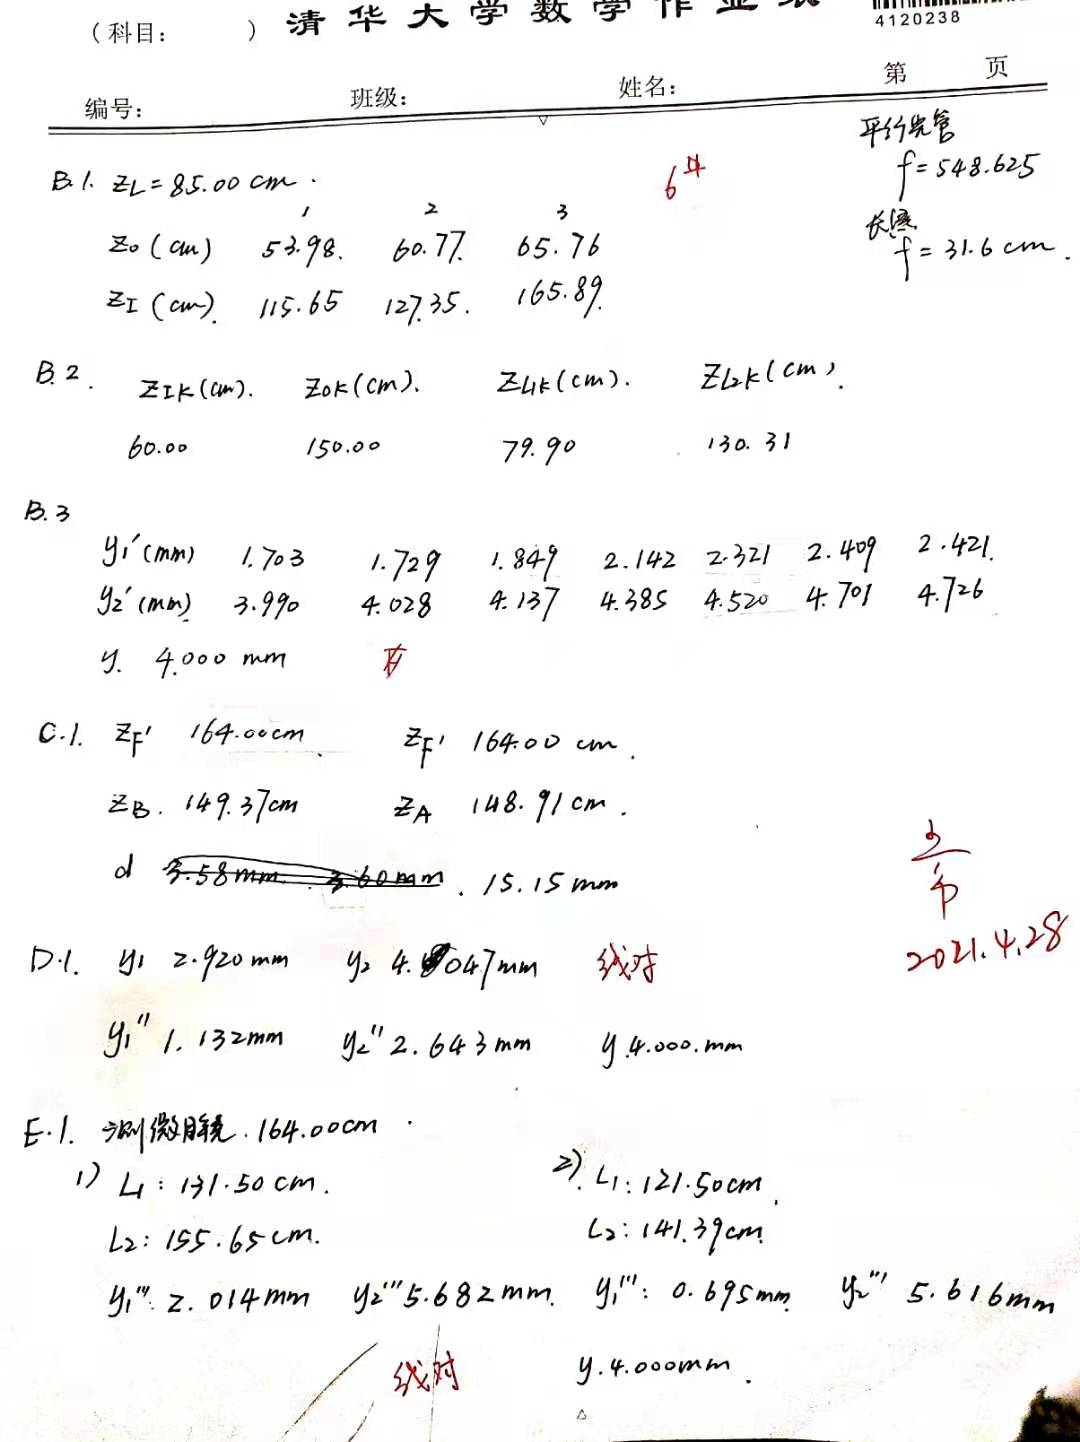 清华大学数学作业纸
4120238
(科目: )
编号: 班级: 姓名: 第 页
平行光管
f=548.625
长焦
f=31.6cm.
B.1. ZL=85.00cm.
6#
1 2 3
Zo(cm) 53.98. 60.77. 65.76
ZI(cm). 115.65 127.35. 165.89.
B.2. ZIK(cm). ZOK(cm). ZL1K(cm). ZL2K(cm).
60.00 150.00 79.90 130.31
B.3
y1'(mm) 1.703 1.729 1.849 2.142 2.321 2.409 2.421.
y2'(mm) 3.990 4.028 4.137 4.385 4.520 4.701 4.726
y. 4.000 mm
C.1. ZF' 164.00cm. ZF' 164.00 cm.
ZB. 149.37cm ZA 148.91cm.
d 3.58mm 3.60mm. 15.15mm
2021.4.28
D.1. y1 2.920mm y2 4.047mm 线对
y1'' 1.132mm y2'' 2.643mm y.4.000.mm
E.1. 测微目镜.164.00cm.
1) L1: 131.50cm. 2). L1: 121.50cm.
L2: 155.65cm. L2: 141.39cm.
y1''': 2.014mm y2''' 5.682mm. y1''': 0.695mm. y2''' 5.616mm
线对 y.4.000mm.